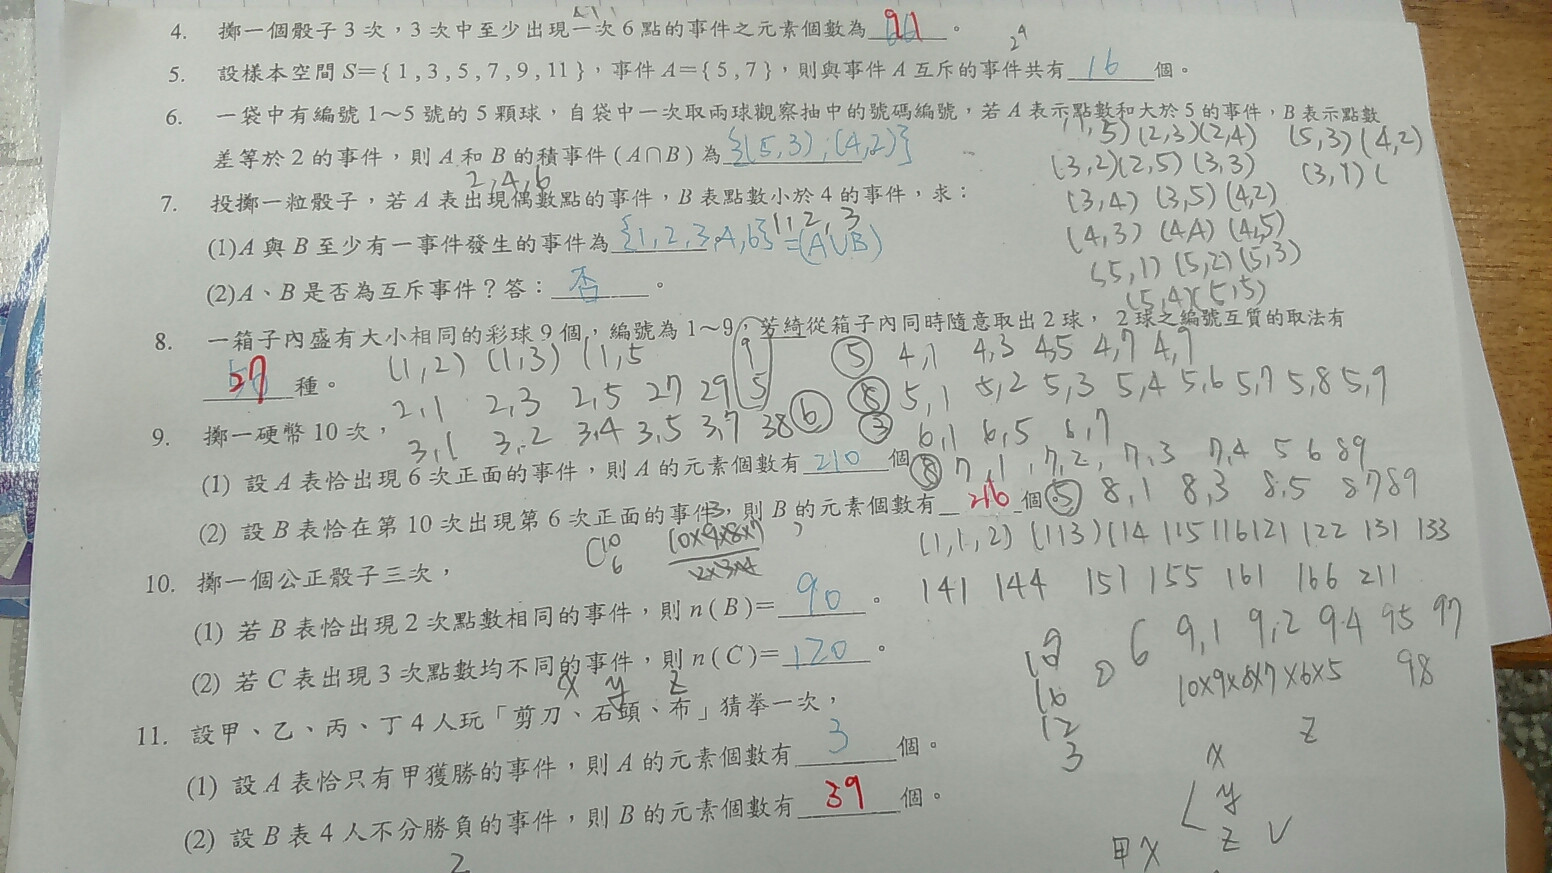 4. 擲一個骰子3次，3次中至少出現一次6點的事件之元素個數為 91 。
2⁴
5. 設樣本空間S={1,3,5,7,9,11}，事件A={5,7}，則與事件A互斥的事件共有 16 個。
6. 一袋中有編號1～5號的5顆球，自袋中一次取兩球觀察抽中的號碼編號，若A表示點數和大於5的事件，B表示點數
差等於2的事件，則A和B的積事件(A∩B)為 {(5,3);(4,2)}
(1,5)(2,3)(2,4) (5,3)(4,2)
(3,2)(2,5)(3,3) (3,1)(
2,4,6
7. 投擲一粒骰子，若A表出現偶數點的事件，B表點數小於4的事件，求：
(3,4)(3,5)(4,2)
1,2,3
(1)A與B至少有一事件發生的事件為 {1,2,3,4,6} =(A∪B)
(4,3)(4,4)(4,5)
(5,1)(5,2)(5,3)
(2)A、B是否為互斥事件？答： 否 。
(5,4)(5,5)
8. 一箱子內盛有大小相同的彩球9個，編號為1～9，若綺從箱子內同時隨意取出2球，2球之編號互質的取法有
27 種。
(1,2) (1,3) (1,5 9 5 ⑤ 4,1 4,3 4,5 4,7 4,9
2,1 2,3 2,5 27 29 5,1 5,2 5,3 5,4 5,6 5,7 5,8 5,9
9. 擲一硬幣10次，
3,1 3,2 3,4 3,5 3,7 38 ⑥ ③ 6,1 6,5 6,7
(1) 設A表恰出現6次正面的事件，則A的元素個數有 210 個
⑧ 7,1 , 7,2, 7,3 7,4 5 6 8 9
(2) 設B表恰在第10次出現第6次正面的事件，則B的元素個數有 個。
⑤ 8,1 8,3 8,5 87 89
C¹⁰₆ 10×9×8×7
(1,1,2) (113) (114 115 116 121 122 131 133
10. 擲一個公正骰子三次，
141 144 151 155 161 166 211
(1) 若B表恰出現2次點數相同的事件，則n(B)= 90 。
6 9,1 9,2 9,4 95 97
98
(2) 若C表出現3次點數均不同的事件，則n(C)= 120 。
10×9×8×7×6×5
16
12
3
x y z
11. 設甲、乙、丙、丁4人玩「剪刀、石頭、布」猜拳一次，
(1) 設A表恰只有甲獲勝的事件，則A的元素個數有 3 個。
(2) 設B表4人不分勝負的事件，則B的元素個數有 39 個。
z
x
y
甲x z
2